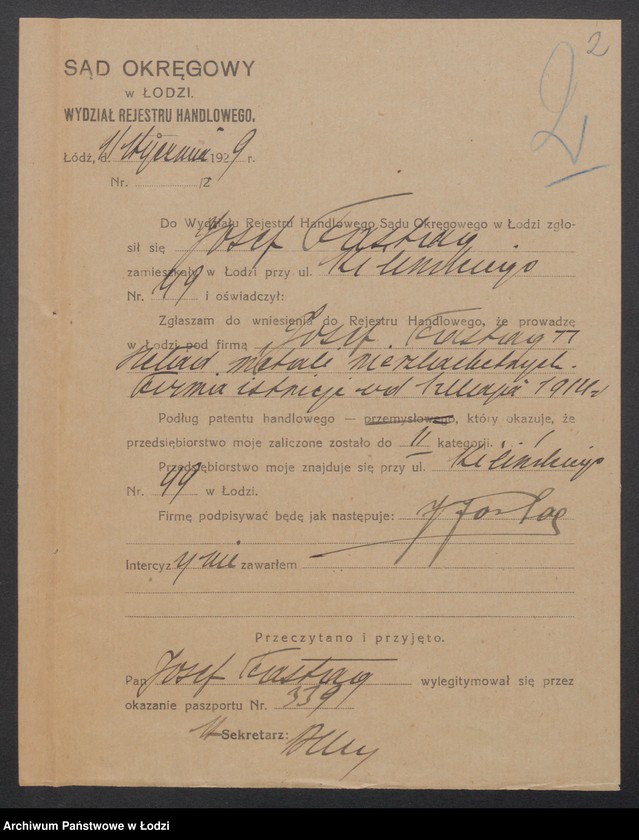 2
2
SĄD OKRĘGOWY
w ŁODZI.
WYDZIAŁ REJESTRU HANDLOWEGO.
Łódź, d. 11 stycznia 1929 r.
Nr. /Z
Do Wydziału Rejestru Handlowego Sądu Okręgowego w Łodzi zgło-
sił się Josef Fastag
zamieszkały w Łodzi przy ul. Kilińskiego
Nr. 99 i oświadczył:
Zgłaszam do wniesienia do Rejestru Handlowego, że prowadzę
w Łodzi pod firmą "Josef Fastag"
skład metali nieszlachetnych.
Firma istnieje od 1914 r
Podług patentu handlowego — przemysłowego, który okazuje, że
przedsiębiorstwo moje zaliczone zostało do II kategorji.
Przedsiębiorstwo moje znajduje się przy ul. Kilińskiego
Nr. 99 w Łodzi.
Firmę podpisywać będę jak następuje: J Fastag
Intercyzy nie zawarłem
Przeczytano i przyjęto.
Pan Josef Fastag wylegitymował się przez
okazanie paszportu Nr. 339
Sekretarz:
Archiwum Państwowe w Łodzi